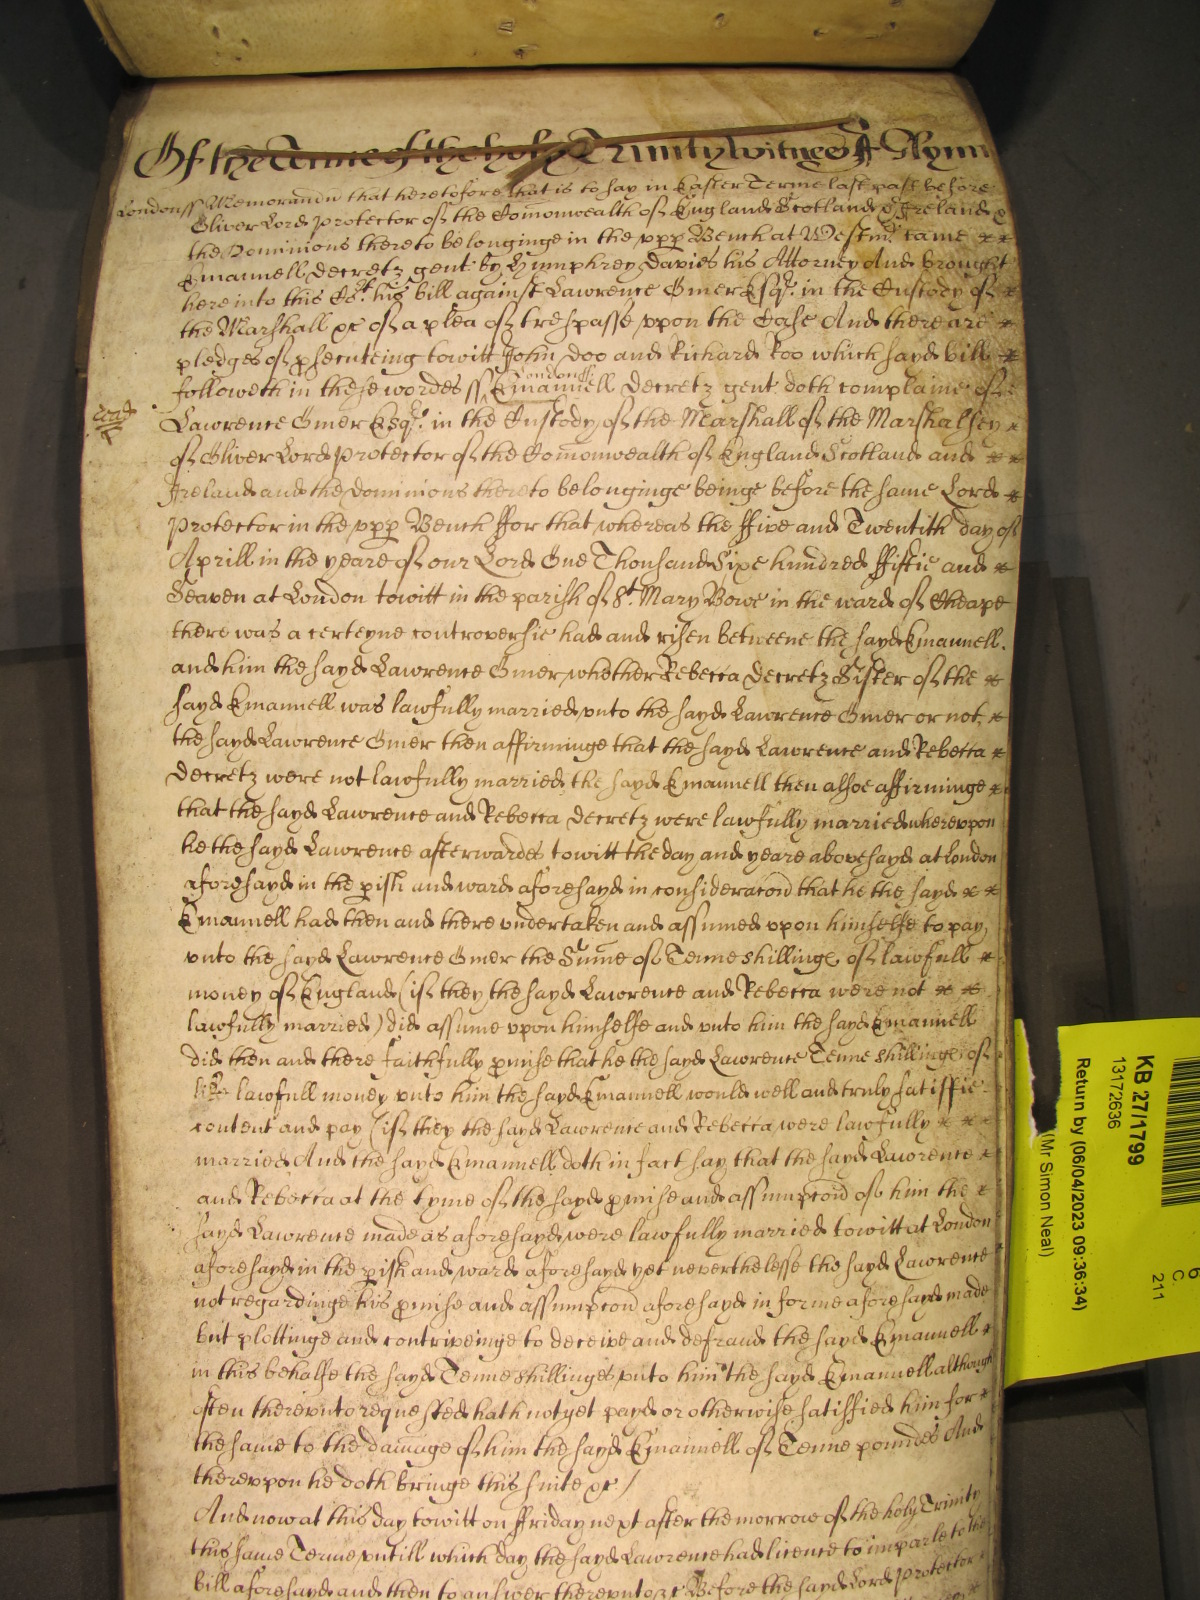 Of the Terme of the holy Trinity witnes Jo Glynn
London ss Memorandu that heretofore that is to say in Easter Terme last past before
Oliver Lord Protector of the Comonwealth of England Scotland & Ireland &
the Dominions thereto belonginge in the upp Bench at Westmr. came
Emanuell Decretz gent by Humphrey Davies his Attorney And brought
here into this Cort. his bill against Lawrence Omer Esqr. in the Custody of
the Marshall &c of a plea of trespasse upon the Case And there are
pledges of psecuteing towitt John Doo and Richard Roo which sayd bill
followeth in these wordes ss London ss Emanuell Decretz gent doth complaine of
Lawrence Omer Esqr. in the Custody of the Marshall of the Marshalsey
of Oliver Lord Protector of the Comonwealth of England Scotland and
Ireland and the Dominions thereto belonginge beinge before the same Lord
Protector in the upp Bench ffor that whereas the ffive and Twentith day of
Aprill in the yeare of our Lord One Thousand Sixe hundred ffiftie and
Seaven at London towitt in the parish of St. Mary Bowe in the ward of Cheape
there was a certeyne controversie had and risen betweene the sayd Emanuell
and him the sayd Lawrence Omer whether Rebecca Decretz Sister of the
sayd Emanuell was lawfully married unto the sayd Lawrence Omer or not
the sayd Lawrence Omer then affirminge that the sayd Lawrence and Rebecca
Decretz were not lawfully married the sayd Emanuell then alsoe affirminge
that the sayd Lawrence and Rebecca Decretz were lawfully married whereupon
he the sayd Lawrence afterwardes towitt the day and yeare abovesayd at London
aforesayd in the pish and ward aforesayd in consideracon that he the sayd
Emanuell had then and there undertaken and assumed upon himselfe to pay
unto the sayd Lawrence Omer the Sume of Tenne shillinges of lawfull
money of England (if they the sayd Lawrence and Rebecca were not
lawfully married) did assume upon himselfe and unto him the sayd Emanuell
did then and there faithfully pmise that he the sayd Lawrence Tenne shillinges of
like lawfull money unto him the sayd Emanuell would well and truly satisfie
content and pay (if they the sayd Lawrence and Rebecca were lawfully
married And the sayd Emanuell doth in fact say that the sayd Lawrence
and Rebecca at the tyme of the sayd pmise and assumpcon of him the
sayd Lawrence made as aforesayd were lawfully married towitt at London
aforesayd in the pish and ward aforesayd yet neverthelesse the sayd Lawrence
not regardinge his pmise and assumpcon aforesayd in forme aforesayd made
but plottinge and contriveinge to deceive and defraud the sayd Emanuell
in this behalfe the sayd Tenne shillinges unto him the sayd Emanuell although
often thereunto requested hath not yet payd or otherwise satisfied him for
the same to the damage of him the sayd Emanuell of Tenne poundes And
thereupon he doth bringe this suite &c /
And now at this day towitt on ffriday next after the morrow of the holy Trinity
this same Terme untill which day the sayd Lawrence had licence to imparle to the
bill aforesayd and then to answer thereunto &c Before the sayd Lord Protector
KB 27/1799
13172636
Return by (06/04/2023 09:36:34)
(Mr Simon Neal)
C
211